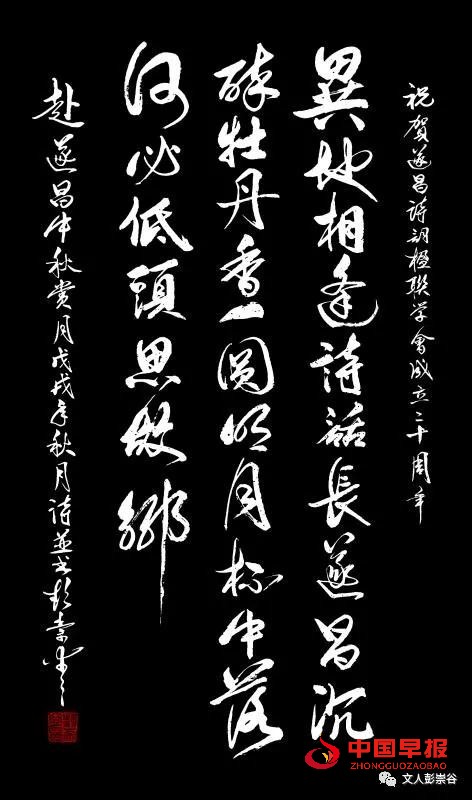 祝賀遂昌詩詞楹聯学會成立三十周年
異地相逢詩話長遂昌沉
醉牡丹香一圆明月杯中落
何必低頭思故鄉
赴遂昌中秋赏月戊戌年秋月詩並书彭崇谷
中国早报
ZHONGGUOZAOBAO
文人彭崇谷